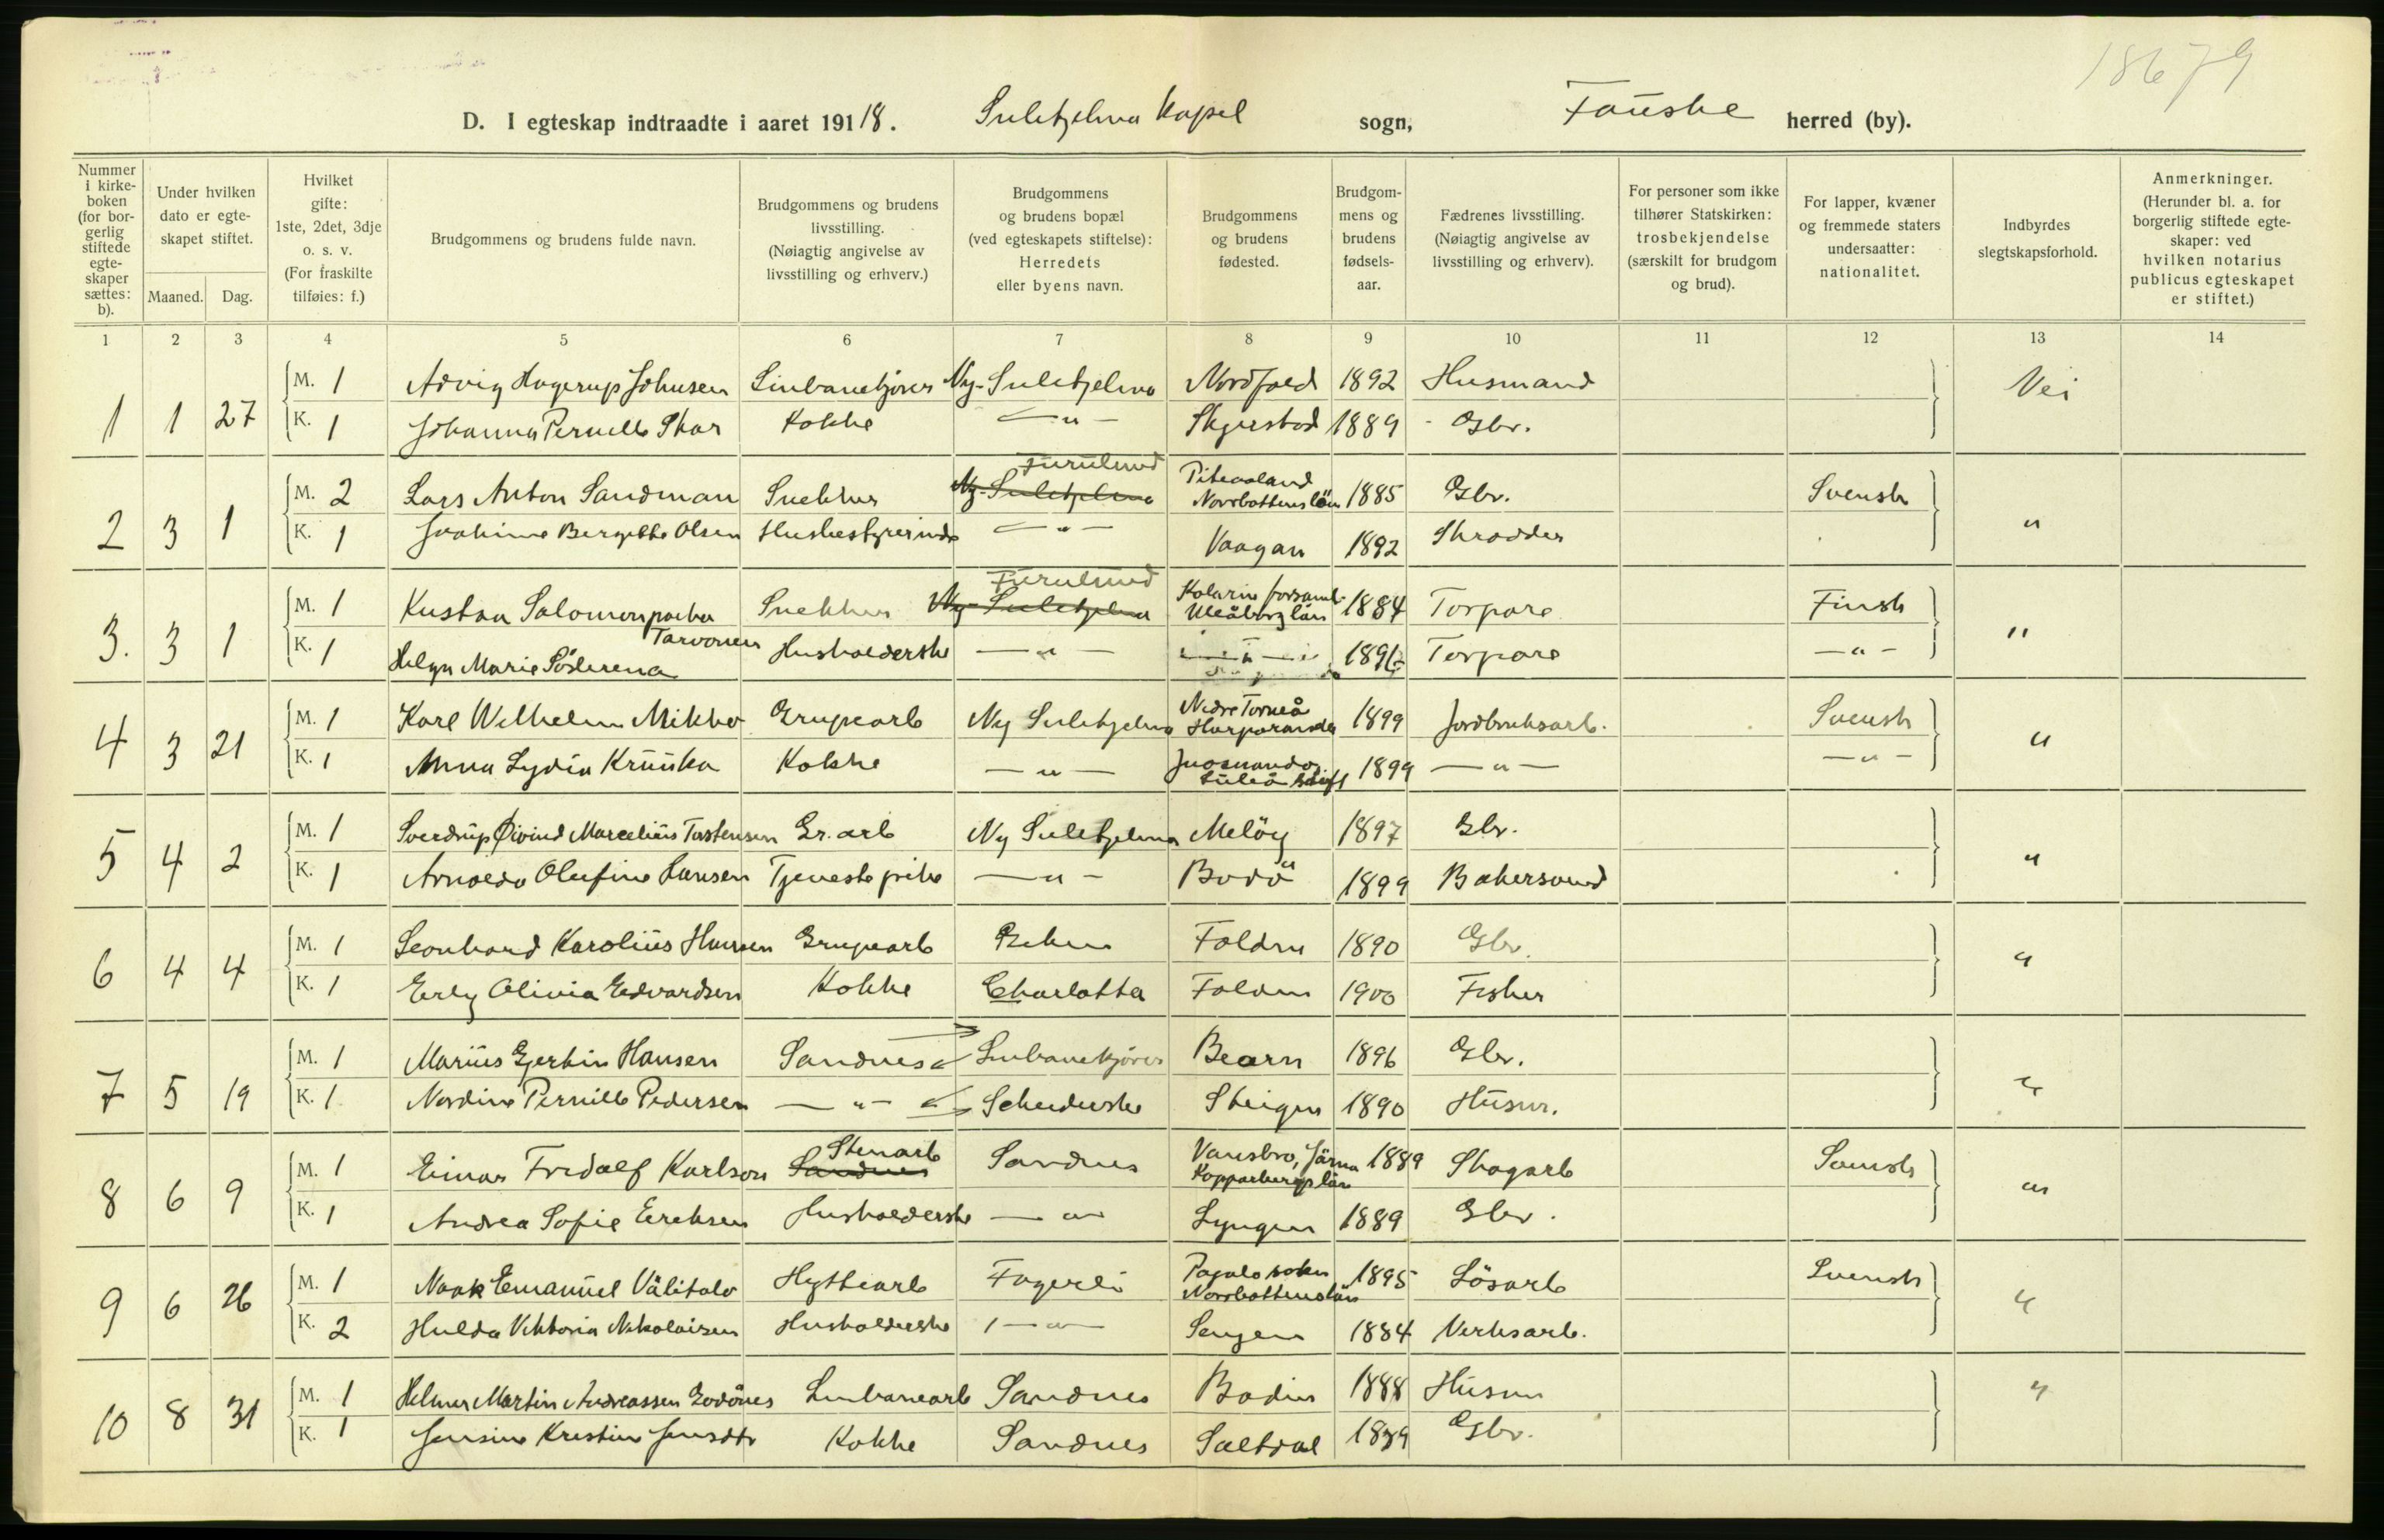 18679
D. I egteskap indtraadte i aaret 1918. Sulitjelma Kapel sogn, Fauske herred (by).
Nummer i kirkeboken (for borgerlig stiftede egteskaper sættes: b).
Under hvilken dato er egteskapet stiftet.
Maaned. Dag.
Hvilket gifte: 1ste, 2det, 3dje o. s. v. (For fraskilte tilføies: f.)
Brudgommens og brudens fulde navn.
Brudgommens og brudens livsstilling. (Nøiagtig angivelse av livsstilling og erhverv.)
Brudgommens og brudens bopæl (ved egteskapets stiftelse): Herredets eller byens navn.
Brudgommens og brudens fødested.
Brudgommens og brudens fødselsaar.
Fædrenes livsstilling. (Nøiagtig angivelse av livsstilling og erhverv).
For personer som ikke tilhører Statskirken: trosbekjendelse (særskilt for brudgom og brud).
For lapper, kvæner og fremmede staters undersaatter: nationalitet.
Indbyrdes slegtskapsforhold.
Anmerkninger. (Herunder bl. a. for borgerlig stiftede egteskaper: ved hvilken notarius publicus egteskapet er stiftet.)
1 2 3 4 5 6 7 8 9 10 11 12 13 14
1 1 27 M. 1 Advig Hagerup Johnsen Linbanekjører Ny-Sulitjelma Nordfold 1892 Husmand Nei
K. 1 Johanna Pernille Skar Kokke — " — Skjerstad 1889 Gbr.
Furulund
2 3 1 M. 2 Lars Anton Sandman Snekker Ny-Sulitjelma Piteaaland Norrbottens län 1885 Gbr. Svensk "
K. 1 Joakime Bergitte Olsen Husbestyrerinde — " — Vaagan 1892 Skrædder
Furulund
3. 3 1 M. 1 Kustaa Salomonpoika Tarvonen Snekker Ny-Sulitjelma Kolarin forsaml. Uleåborg län 1884 Torpare Finsk "
K. 1 Helga Marie Söderena Husholderske — " — — " — 1896 Torpare — " —
4 3 21 M. 1 Karl Wilhelm Mikko Grupearb Ny Sulitjelma Nedre Torneå Haparanda 1899 Jordbruksarb. Svensk "
K. 1 Anna Lydia Kruuka Kokke — " — Junosuando, Luleå stift 1899 — " — — " —
5 4 2 M. 1 Sverdrup Øivind Marcelius Torstensen Gr. arb Ny Sulitjelma Melöy 1897 Gbr. "
K. 1 Arnolda Olufine Hansen Tjenestepike — " — Bodö 1899 Bakersvend
6 4 4 M. 1 Leonhard Karolius Hansen Grupearb Folden 1890 Gbr. "
K. 1 Olivia Edvardsen Kokke Charlotta Folden 1900 Fisker
7 5 19 M. 1 Marius Gjertin Hansen Sandnes Linbanekjører Beiarn 1896 Gbr. "
K. 1 Nordine Pernille Pedersen — " — Scheiderske Steigen 1890 Husm.
Stenarb
8 6 9 M. 1 Einar Fridolf Karlson Sandnes Sandnes Vansbro, Järna Kopparbergs län 1889 Skogarb Svensk "
K. 1 Andrea Sofie Eriksen Husholderske — " — Lyngen 1889 Gbr.
9 6 26 M. 1 Emanuel Välitalo Hyttearb Fagerli Pajala soken Norrbottens län 1895 Lösarb Svensk "
K. 2 Hulda Viktoria Nikolaisen Husholderske — " — Senjen 1884 Verksarb.
10 8 31 M. 1 Helmer Martin Andreassen Godönes Linbanearb Sandnes Bodin 1888 Husm "
K. 1 Jensine Kristine Jensdtr Kokke Sandnes Saltdal 1889 Gbr.